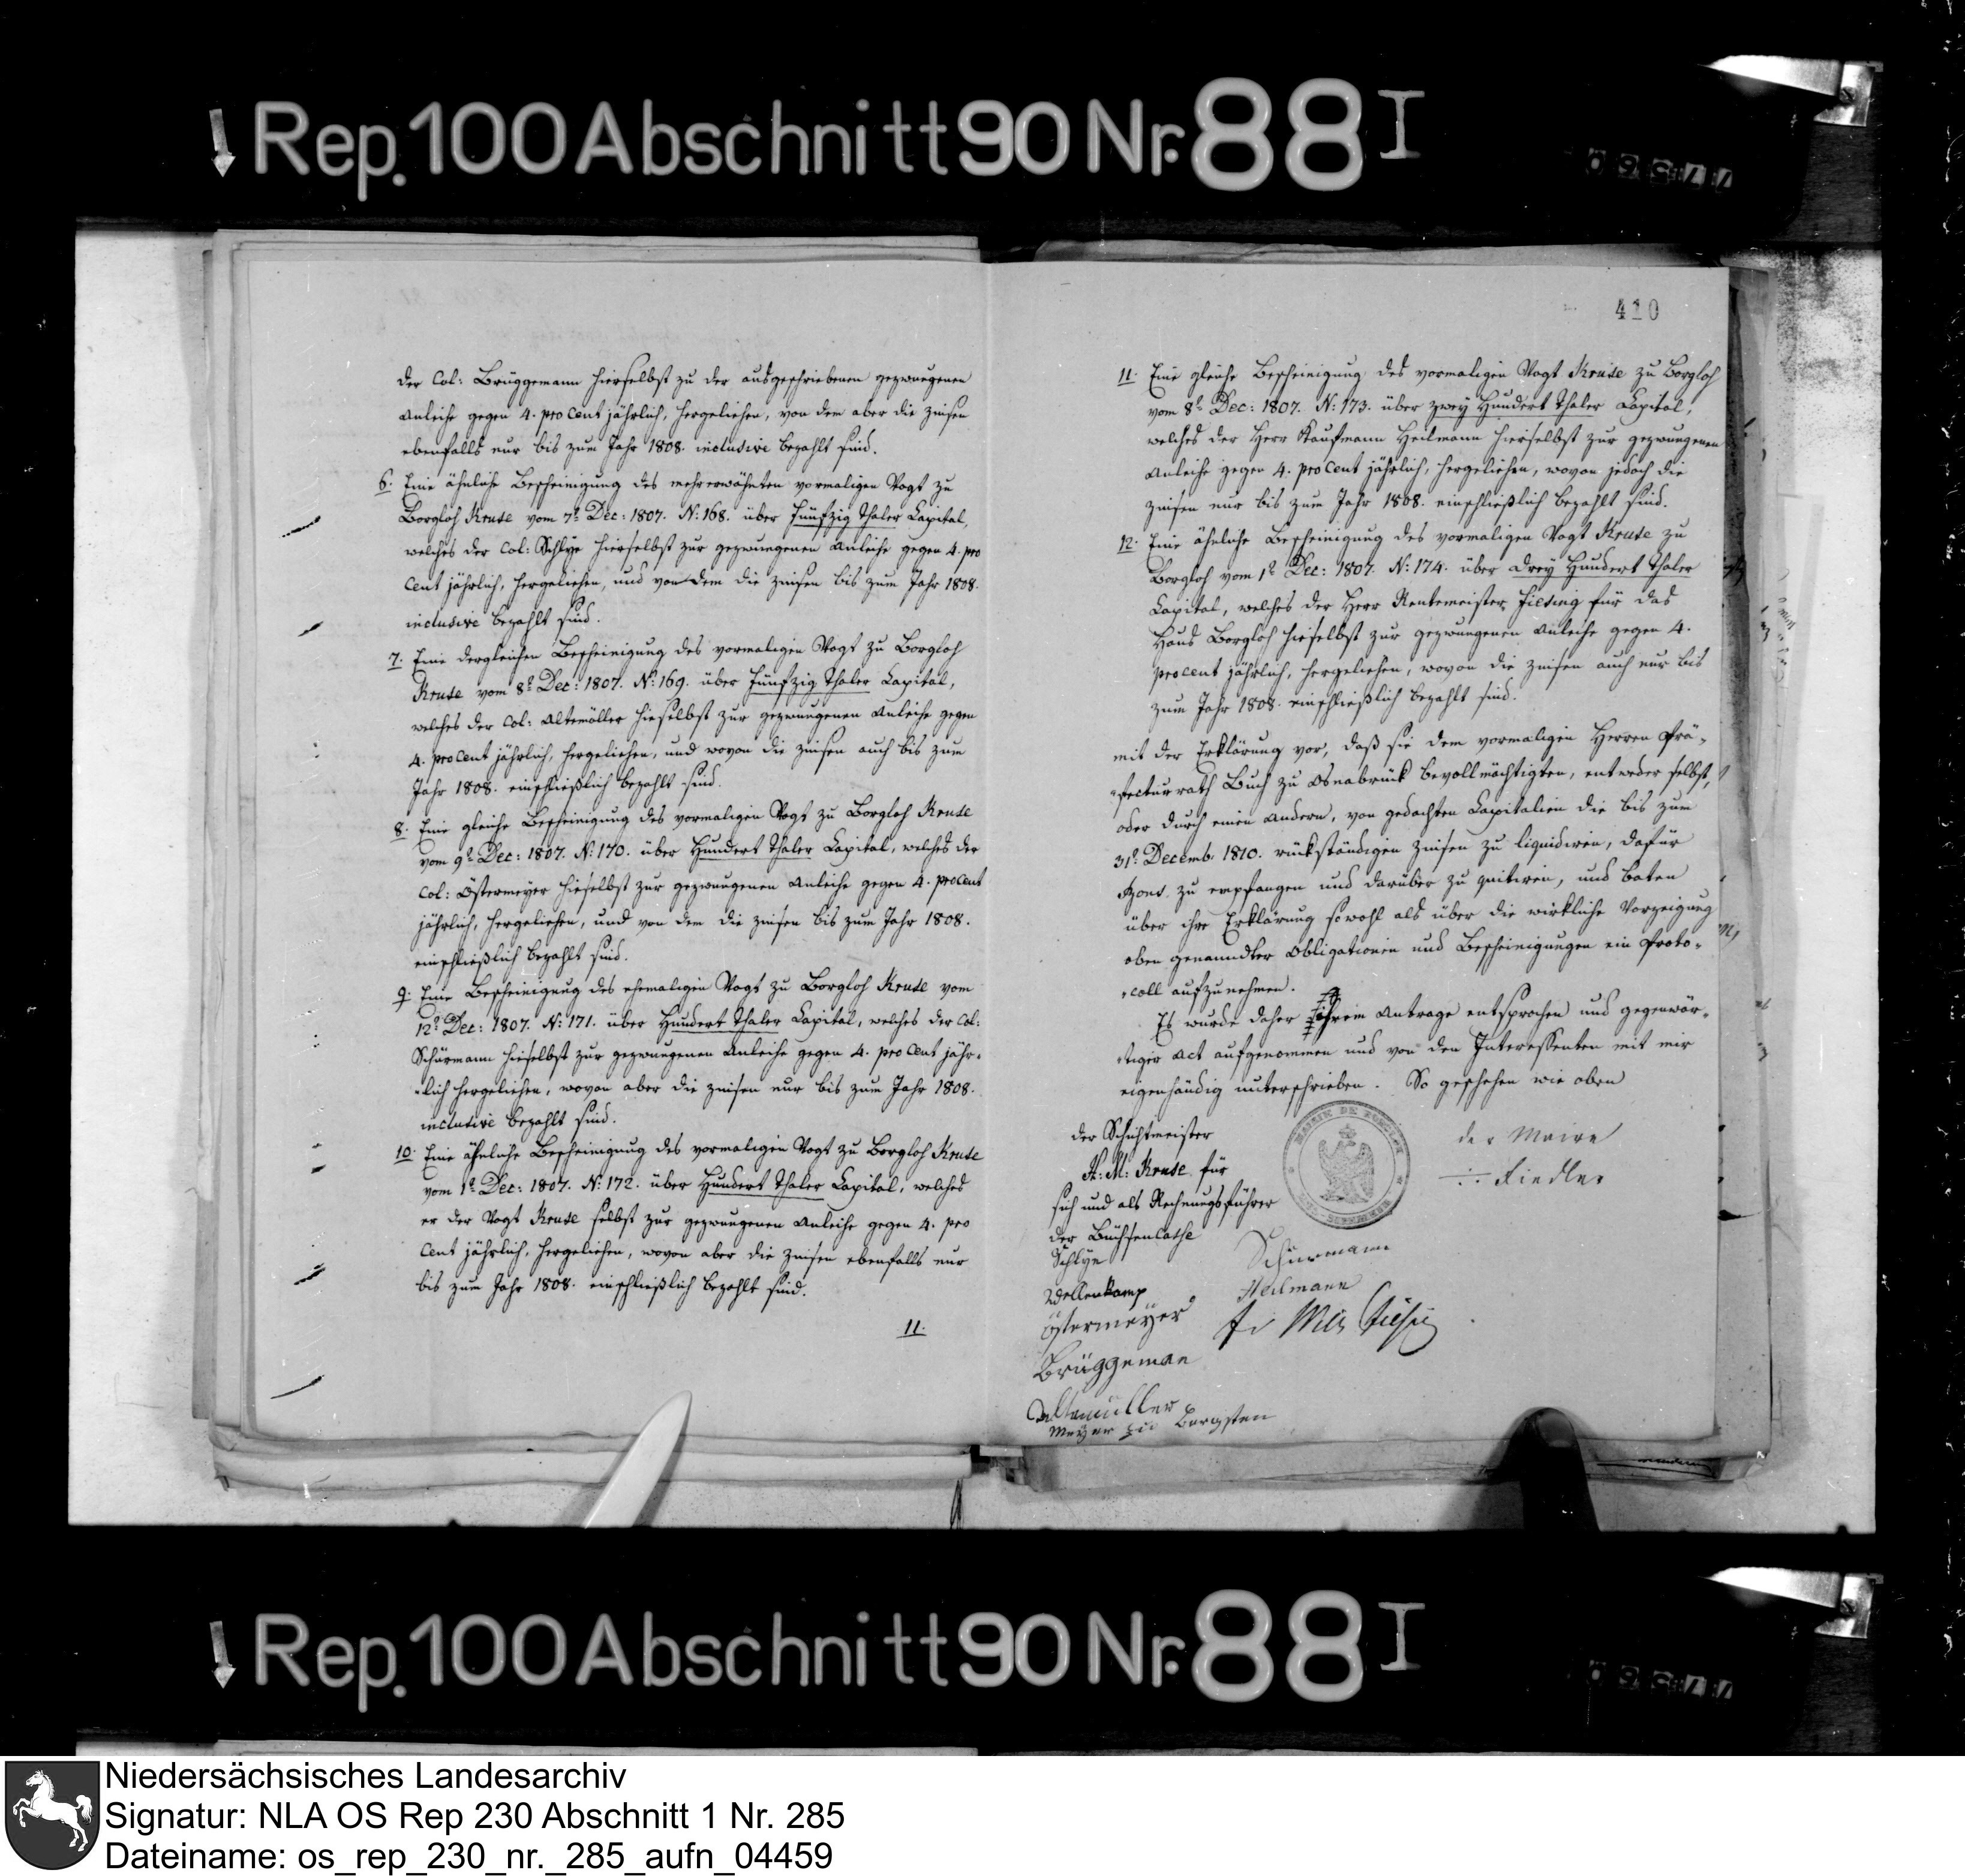 Rep. 100 Abschnitt 90 Nr. 88 I
77560
410
der Col: Brüggemann hierselbst zu der ausgeschriebenen gezwungenen
Anleihe gegen 4. pro Cent jährlich, hergeliehen, von dem aber die Zinsen
ebenfalls nur bis zum Jahr 1808. inclusive bezahlt sind.
6. Eine ähnliche Bescheinigung des mehrerwähnten vormaligen Vogt zu
Borgloh Kruse vom 7t Dec: 1807. N: 168. über fünfzig Thaler Capital,
welches der Col: Schlye hierselbst zur gezwungenen Anleihe gegen 4. pro
Cent jährlich, hergeliehen, und von dem die Zinsen bis zum Jahr 1808.
inclusive bezahlt sind.
7. Eine dergleichen Bescheinigung des vormaligen Vogt zu Borgloh
Kruse vom 8t Dec: 1807. N: 169. über fünfzig Thaler Capital,
welches der Col: Altemöller hieselbst zur gezwungenen Anleihe gegen
4. pro Cent jährlich, hergeliehen, und wovon die Zinsen auch bis zum
Jahr 1808. einschließlich bezahlt sind.
8. Eine gleiche Bescheinigung des vormaligen Vogt zu Borgloh Kruse
vom 9t Dec: 1807. N: 170. über Hundert Thaler Capital, welches der
Col: Östermeyer hieselbst zur gezwungenen Anleihe gegen 4. pro Cent
jährlich, hergeliehen, und von dem die Zinsen bis zum Jahr 1808.
einschließlich bezahlt sind.
9. Eine Bescheinigung des ehemaligen Vogt zu Borgloh Kruse vom
12t Dec: 1807. N: 171. über Hundert Thaler Capital, welches der Col:
Schürmann hieselbst zur gezwungenen Anleihe gegen 4. pro Cent jähr-
-lich hergeliehen, wovon aber die Zinsen nur bis zum Jahr 1808.
inclusive bezahlt sind.
10. Eine ähnliche Bescheinigung des vormaligen Vogt zu Borgloh Kruse
vom 1t Dec: 1807. N: 172. über Hundert Thaler Capital, welches
er der Vogt Kruse selbst zur gezwungenen Anleihe gegen 4. pro
Cent jährlich, hergeliehen, wovon aber die Zinsen ebenfalls nur
bis zum Jahr 1808. einschließlich bezahlt sind.
11.
11. Eine gleiche Bescheinigung des vormaligen Vogt Kruse zu Borgloh
vom 8t Dec: 1807. N: 173. über zwey Hundert Thaler Capital,
welches der Herr Kaufmann Heilmann hierselbst zur gezwungenen
Anleihe gegen 4. pro Cent jährlich, hergeliehen, wovon jedoch die
Zinsen nur bis zum Jahr 1808. einschließlich bezahlt sind.
12. Eine ähnliche Bescheinigung des vormaligen Vogt Kruse zu
Borgloh vom 1t Dec: 1807. N: 174. über drey Hundert Thaler
Capital, welches der Herr Rentemeister Fiesing für das
Haus Borgloh hieselbst zur gezwungenen Anleihe gegen 4.
pro Cent jährlich, hergeliehen, wovon die Zinsen auch nur bis
zum Jahr 1808. einschließlich bezahlt sind.
mit der Erklärung vor, daß sie dem vormaligen Herren Prä-
-fecturrath Buch zu Osnabrück bevollmächtigten, entweder selbst,
oder durch einen Andern, von gedachten Capitalien die bis zum
31t Decemb. 1810. rückständigen Zinsen zu liquidiren, dafür
Bons zu empfangen und darüber zu quitiren, und baten
über ihre Erklärung sowohl als über die wirkliche Vorzeigung
oben genanndter Obligationen und Bescheinigungen ein Proto-
-coll aufzunehmen.
Es wurde daher ihrem Antrage entsprochen und gegenwär-
-tiger Act aufgenommen und von den Interessenten mit mir
eigenhändig unterschrieben. So geschehen wie oben
der Schichtmeister
der Maire
Fiedler
H: M: Kruse für
sich und als Rechnungsführer
der Büchsencasse
MAIRIE DE BORGLOH
Schlye
Schürmann
Wellenkamp
Heilmann
Östermeyer
Brüggeman
Altemüller
Meyer zu Bergsten
Rep. 100 Abschnitt 90 Nr. 88 I
77560
Niedersächsisches Landesarchiv
Signatur: NLA OS Rep 230 Abschnitt 1 Nr. 285
Dateiname: os_rep_230_nr._285_aufn_04459